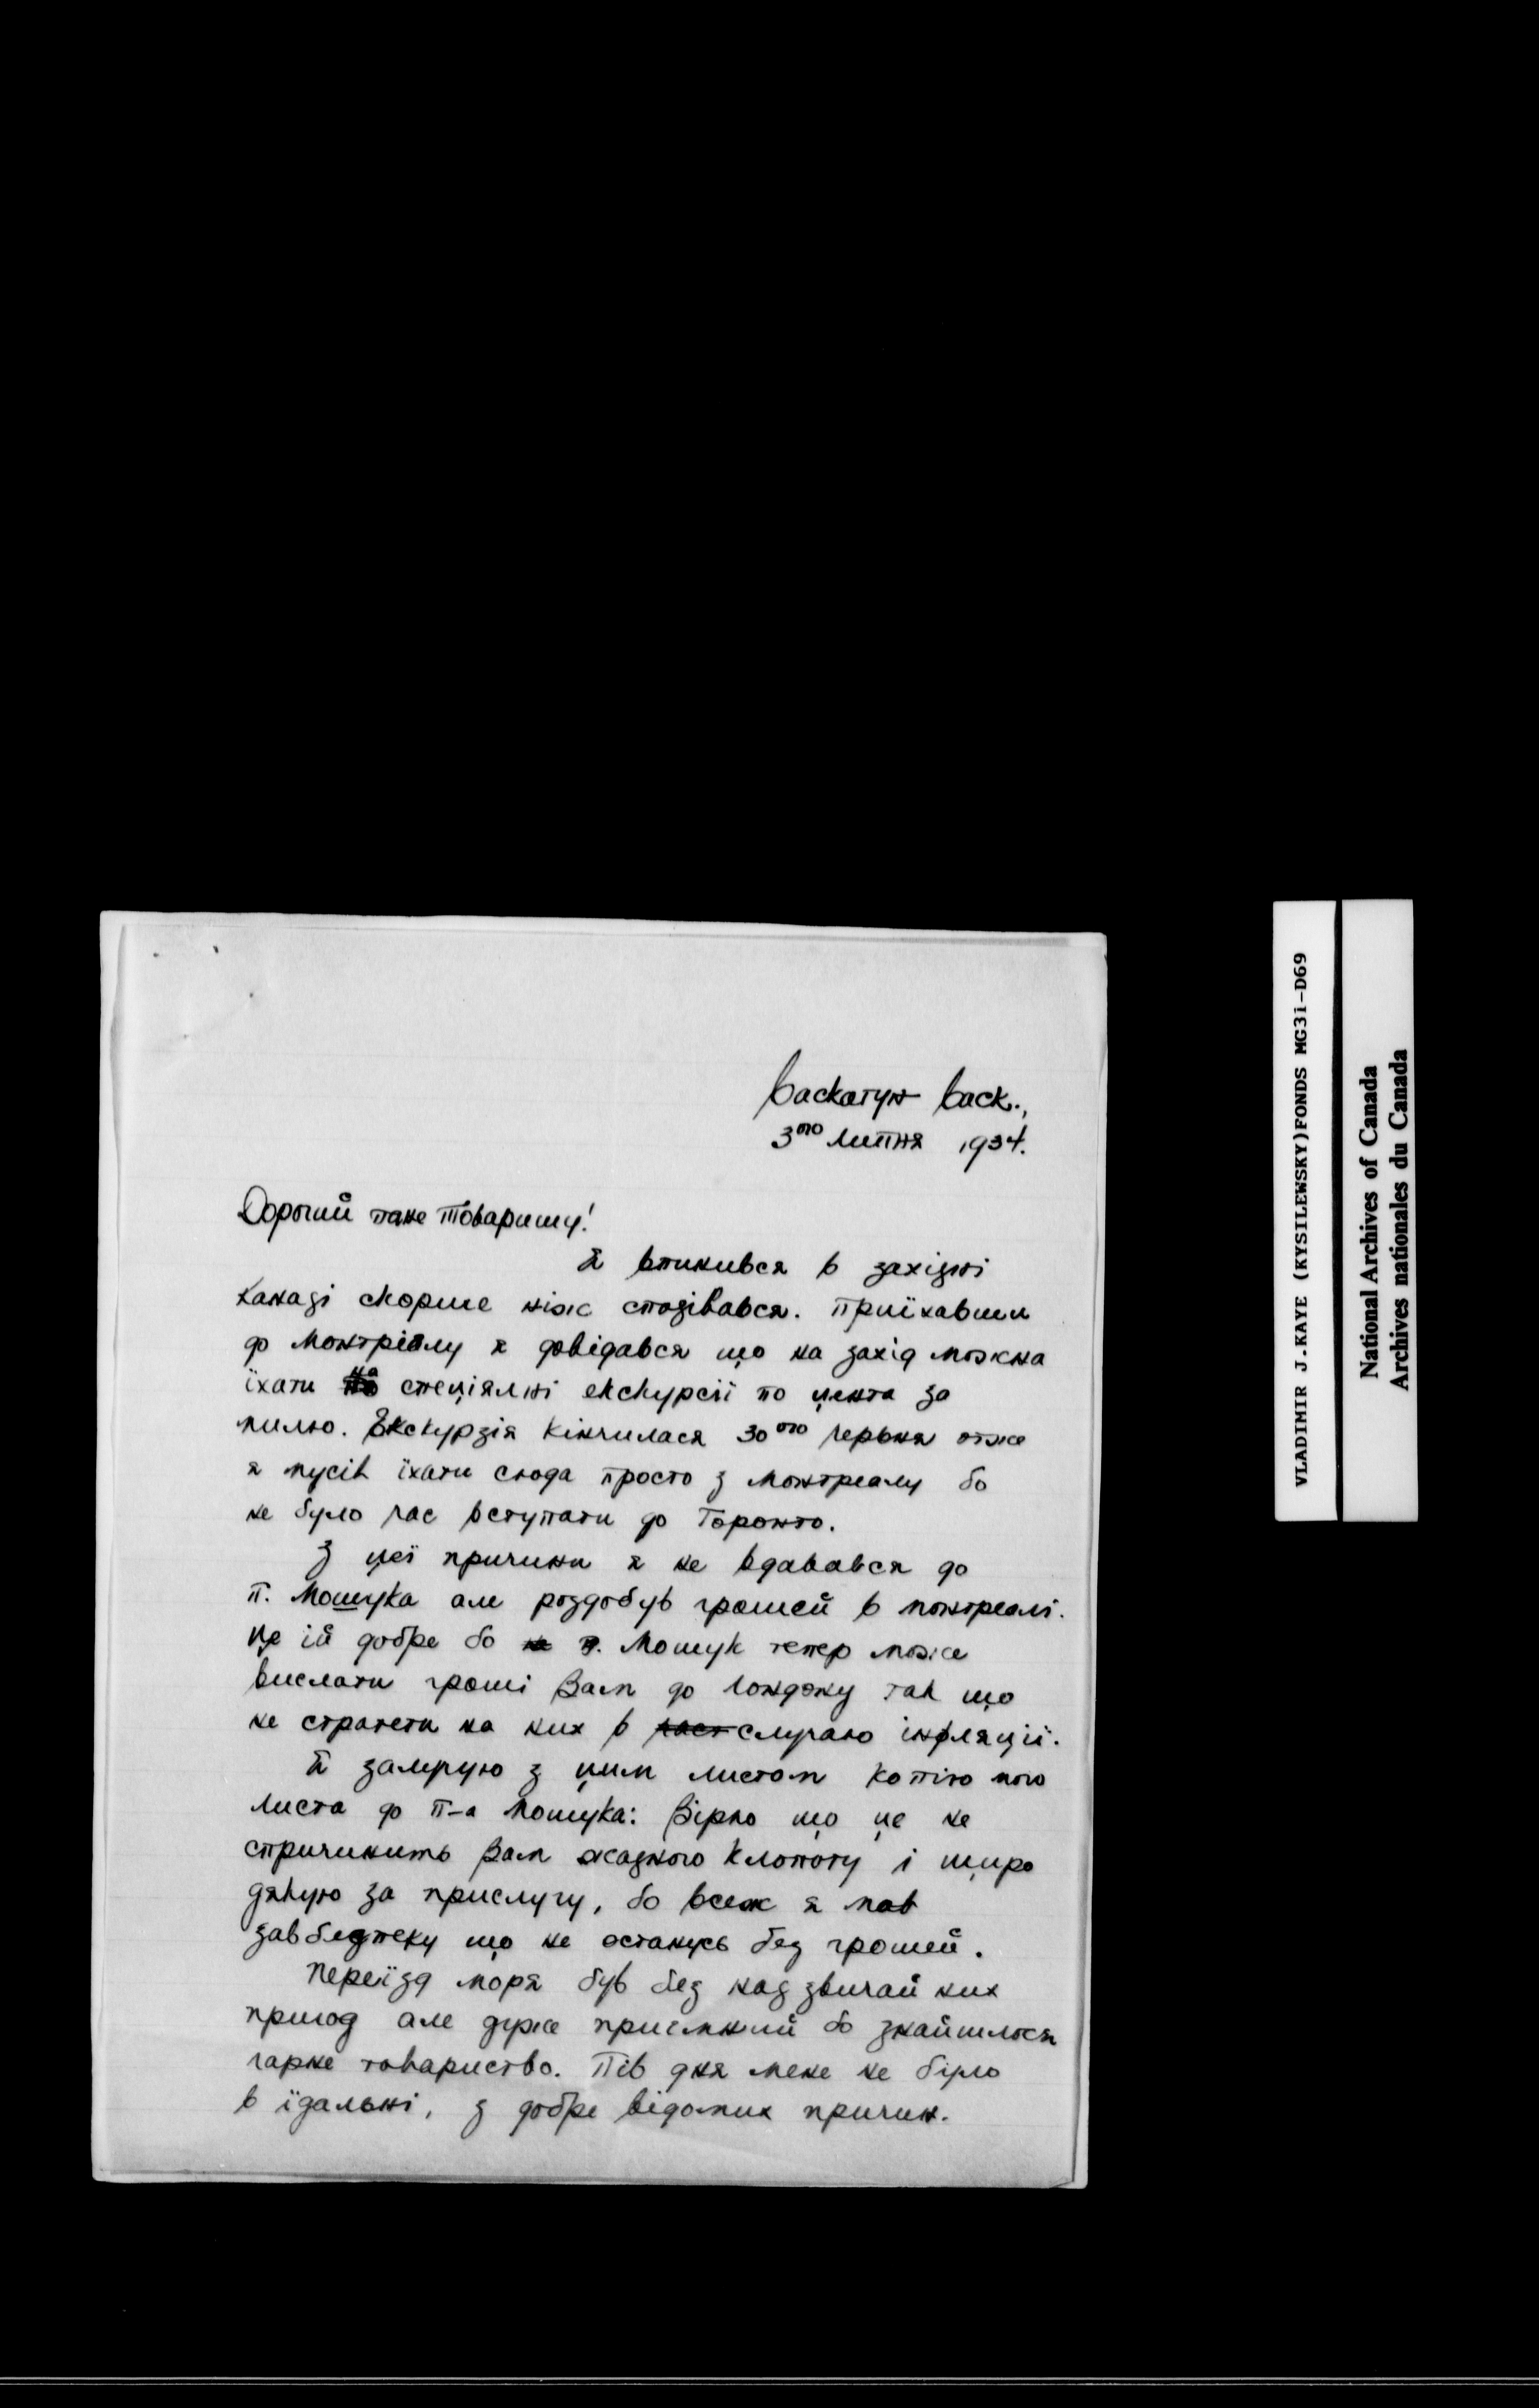 Саскатун Саск.,
3ого Липня 1934.
Дорогий пане Товаришу!
Я опинився в західні
Канаді скорше ніж сподівався. Приїхавши
до Монтріалу я довідався що на захід можна
їхати на спеціялні екскурсії по цента за
милю. Екскурзія кінчилася 30ого червня отже
я мусів їхати сюда просто з Монтреалу бо
не було час вступати до Торонто.
З цеї причини я не вдавався до
п. Мошука але роздобув грошей в Монтреалі.
Це ій добре бо п. Мошук тепер може
вислати гроші Вам до Лондону так що
не стратети на них в случаю інфляції.
Я залучую з цим листом копію мого
листа до п-а Мошука: Вірю що це не
спричинить Вам жадного клопоту і щиро
дякую за прислугу, бо всеж я мав
завбезпеку що не останусь без грошей.
Переїзд моря був без надзвичайних
пригод але дуже приємний бо знайшлося
гарне товариство. Пів дня мене не було
в їдальні, з добре відомих причин.
VLADIMIR J.KAYE (KYSILEWSKY)FONDS MG31-D69
National Archives of Canada
Archives nationales du Canada